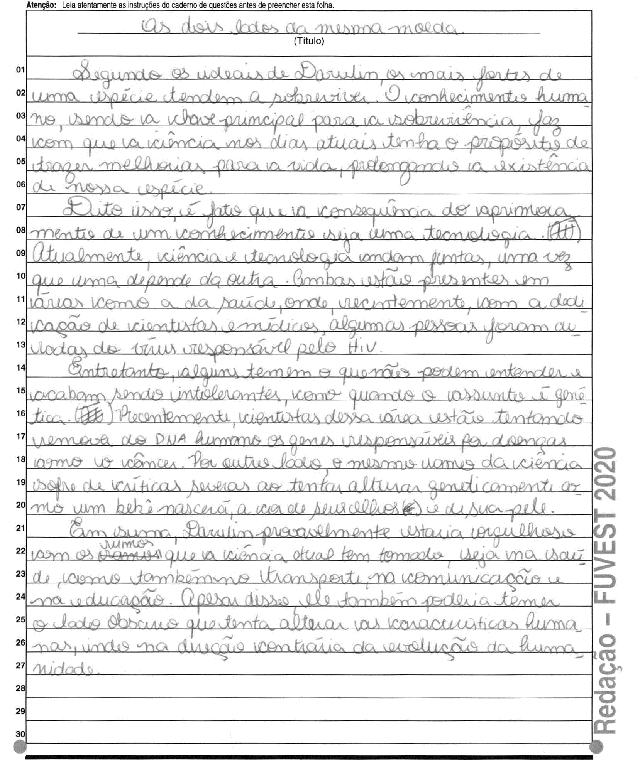 Atenção: Leia atentamente as instruções do caderno de questões antes de preencher esta folha.
As dois lados da mesma moeda.
(Título)
01 Segundo os ideais de Darwin, os mais fortes de
02 uma espécie tendem a sobreviver. O conhecimento huma
03 no, sendo a chave principal para a sobrevivência, faz
04 com que a ciência nos dias atuais tenha o propósito de
05 trazer melhorias para a vida, prolongando a existência
06 de nossa espécie.
07 Dito isso, é fato que a consequência do aprimora
08 mento de um conhecimento seja uma tecnologia.
09 Atualmente, ciência e tecnologia andam juntas, uma vez
10 que uma depende da outra. Ambas estão presentes em
11 várias como a da saúde, onde, recentemente, com a dedi
12 cação de cientistas e médicos, algumas pessoas foram cu
13 radas do vírus responsável pelo HIV.
14 Entretanto, alguns temem o que não podem entender e
15 acabam sendo intolerantes, como quando o assunto é gené
16 tica. Recentemente, cientistas dessa área estão tentando
17 remover do DNA humano os genes responsáveis por doenças
18 como o câncer. Por outro lado, o mesmo ramo da ciência
19 sofre de críticas severas ao tentar alterar geneticamente co-
20 mo um bebê nascerá, a cor de seus olhos e de sua pele.
21 Em suma, Darwin provavelmente estaria orgulhoso
22 com os rumos que a ciência atual tem tomado, seja na saú
23 de, como também no transporte, na comunicação e
24 na educação. Apesar disso, ele também poderia temer
25 o lado obscuro que tenta alterar as características huma
26 nas, indo na direção contrária da evolução da huma-
27 nidade.
28
29
30
Redação – FUVEST 2020